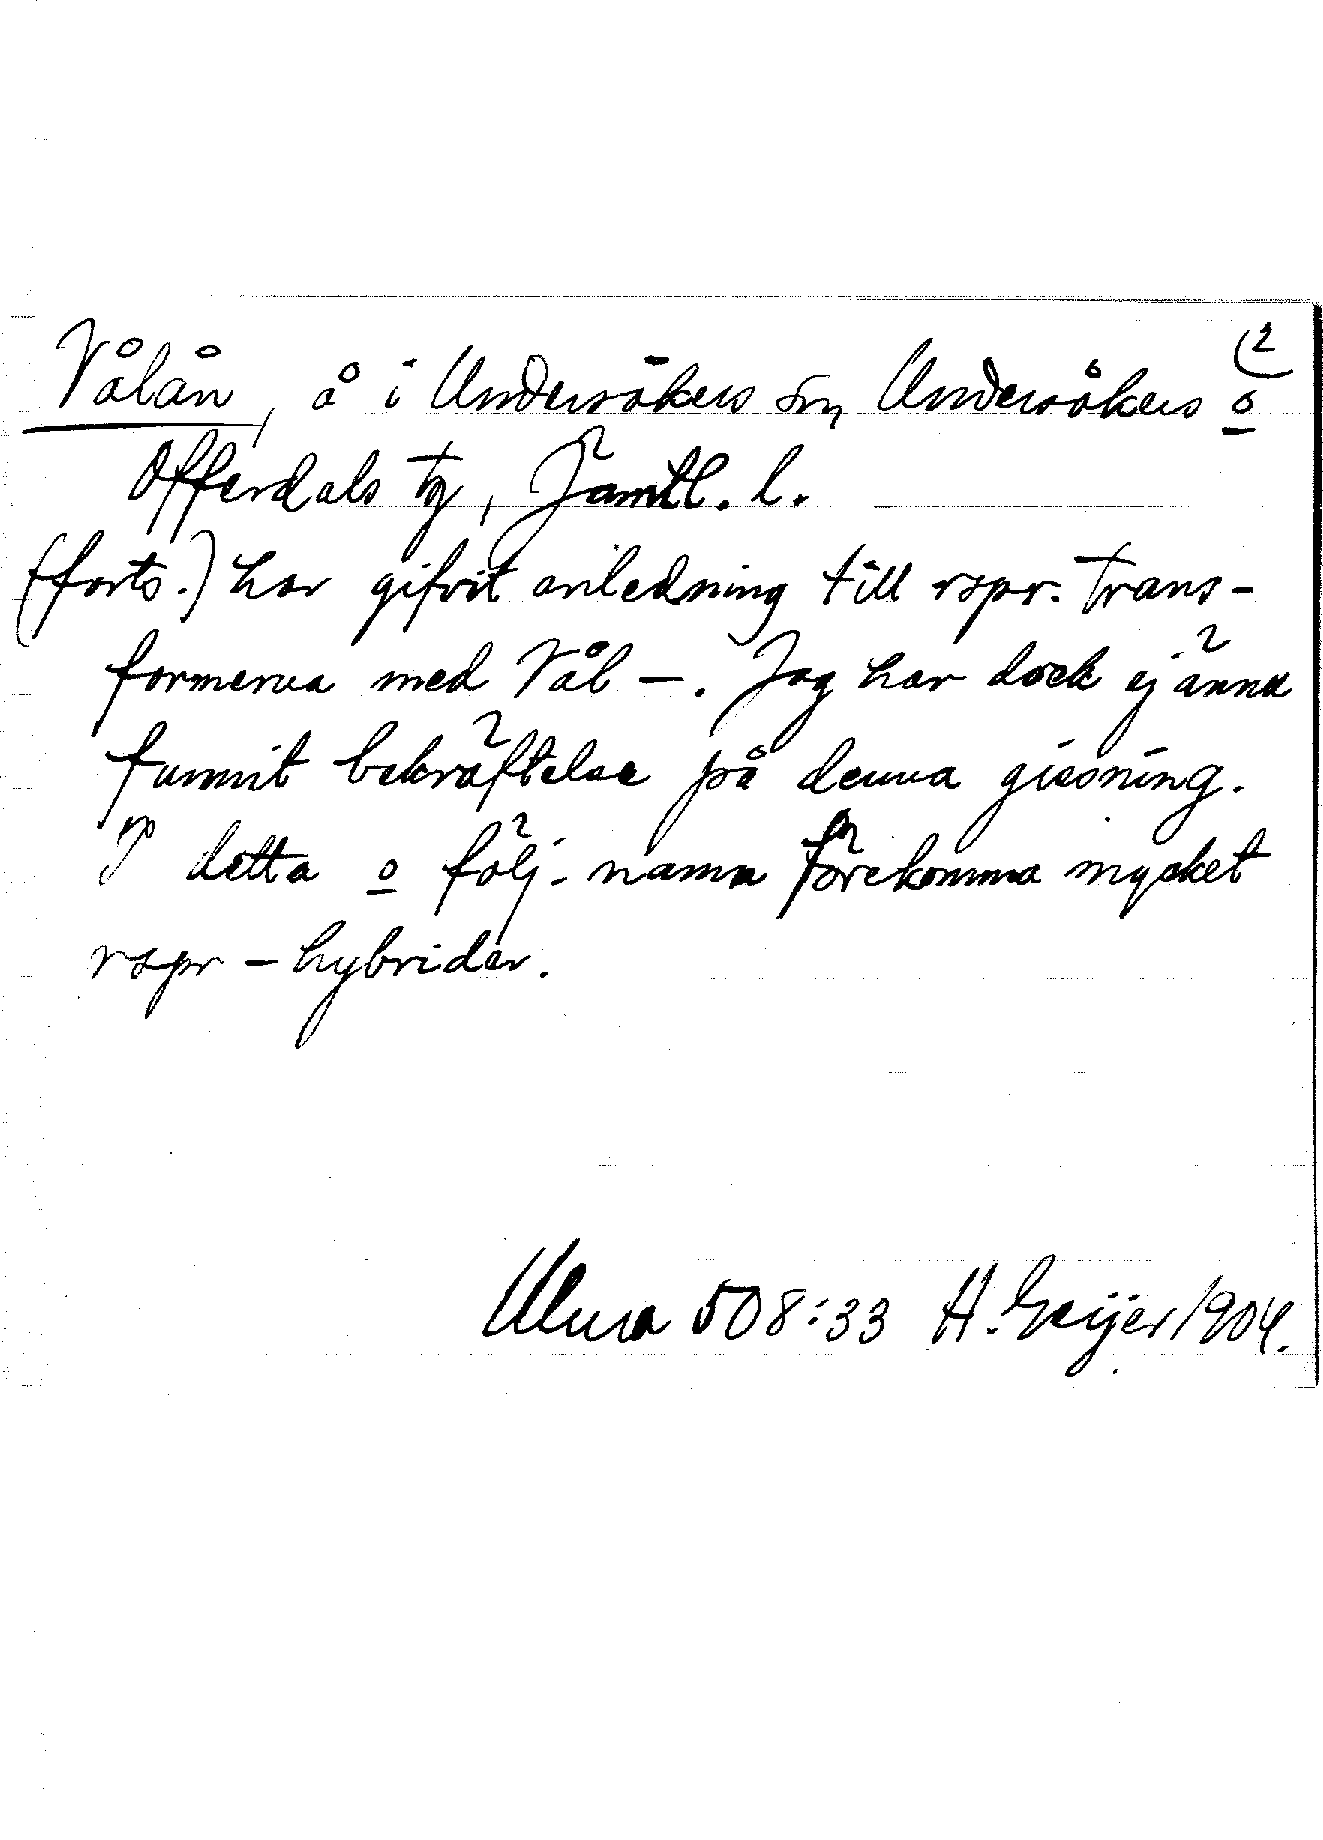 (2
Vålån, å i Undersåkers sn, Undersåkers o
Offerdals tg, Jämtl. l.
(forts.) har gifvit anledning till rspr. trans-
formerna med Vål –. Jag har dock ej ännu
funnit bekräftelse på denna gissning.
I detta o följ. namn förekomma mycket
rspr – hybrider.
Ulma 508:33 H. Geijer 1904.